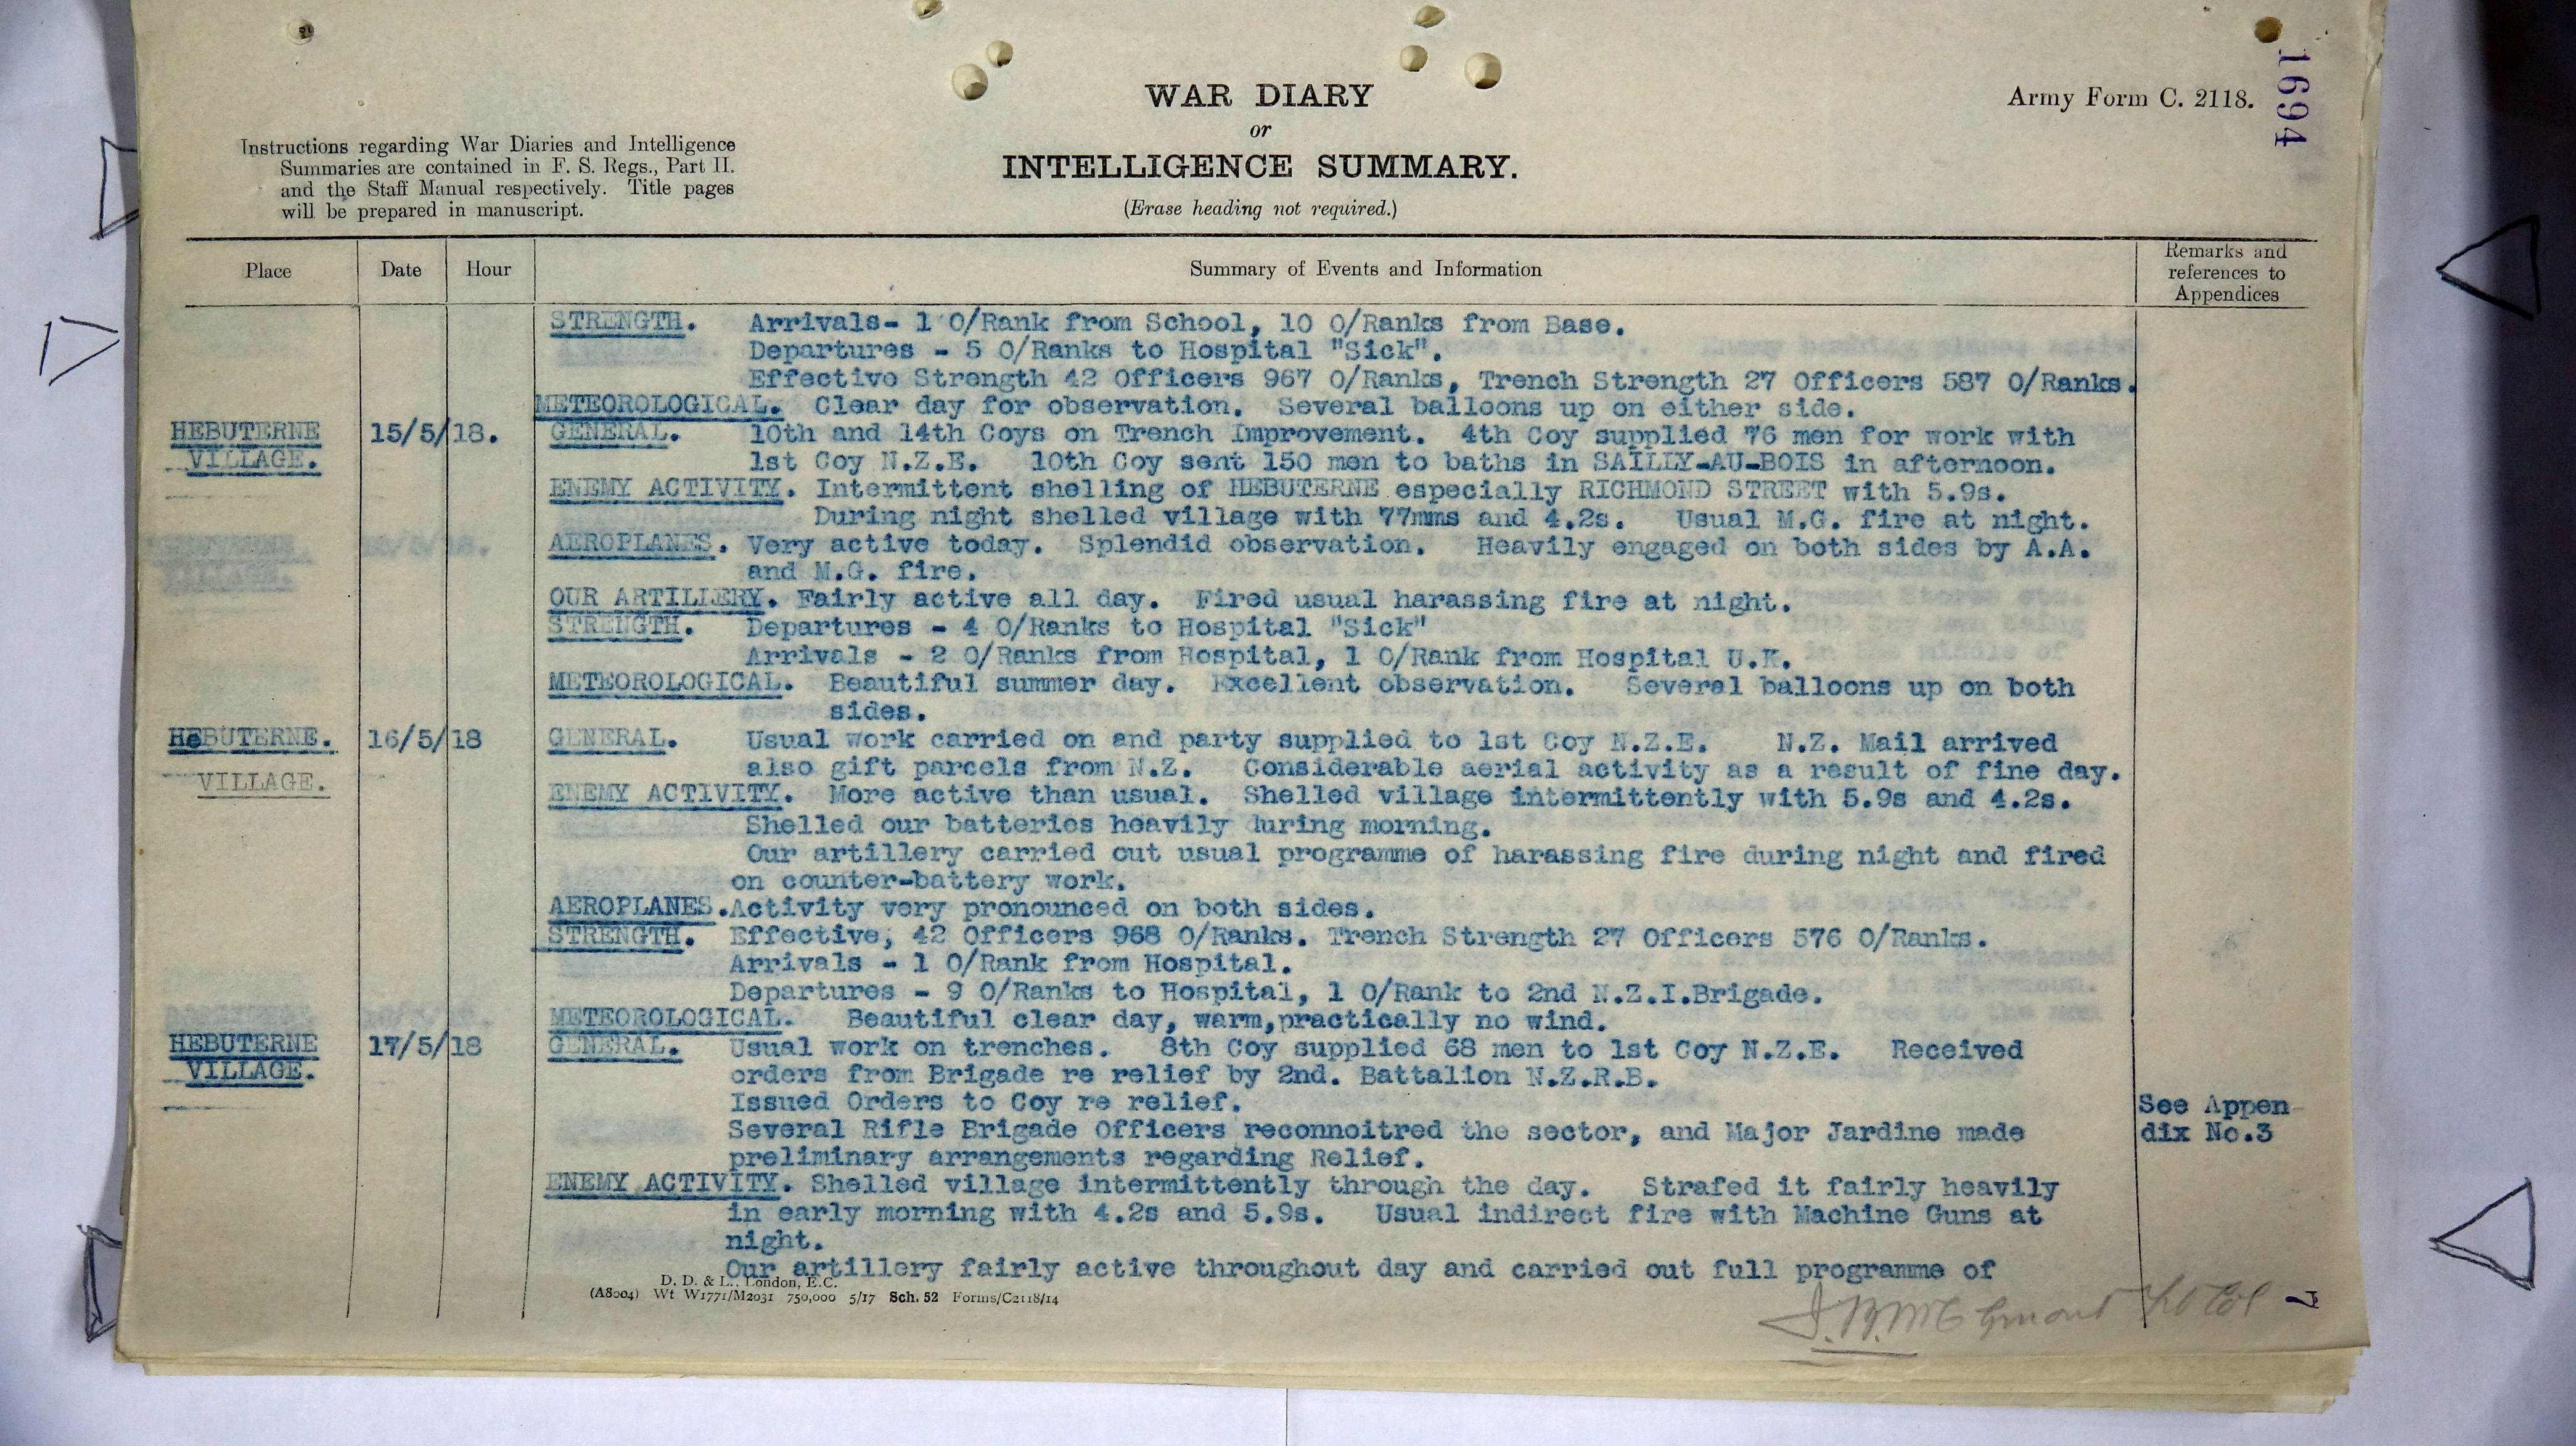 WAR DIARY
or
INTELLIGENCE SUMMARY.
(Erase heading not required.)
Army Form C. 2118.
1694
Instructions regarding War Diaries and Intelligence
Summaries are contained in F. S. Regs., Part II.
and the Staff Manual respectively. Title pages
will be prepared in manuscript.
Place Date Hour Summary of Events and Information Remarks and
references to
Appendices
STRENGTH. Arrivals- 1 O/Rank from School, 10 O/Ranks from Base.
Departures - 5 O/Ranks to Hospital "Sick".
Effective Strength 42 Officers 967 O/Ranks, Trench Strength 27 Officers 587 O/Ranks.
METEOROLOGICAL. Clear day for observation. Several balloons up on either side.
HEBUTERNE 15/5/18. GENERAL. 10th and 14th Coys on Trench Improvement. 4th Coy supplied 76 men for work with
VILLAGE. 1st Coy N.Z.E. 10th Coy sent 150 men to baths in SAILLY-AU-BOIS in afternoon.
ENEMY ACTIVITY. Intermittent shelling of HEBUTERNE especially RICHMOND STREET with 5.9s.
During night shelled village with 77mms and 4.2s. Usual M.G. fire at night.
AEROPLANES. Very active today. Splendid observation. Heavily engaged on both sides by A.A.
and M.G. fire.
OUR ARTILLERY. Fairly active all day. Fired usual harassing fire at night.
STRENGTH. Departures - 4 O/Ranks to Hospital "Sick"
Arrivals - 2 O/Ranks from Hospital, 1 O/Rank from Hospital U.K.
METEOROLOGICAL. Beautiful summer day. Excellent observation. Several balloons up on both
sides.
HeBUTERNE. 16/5/18 GENERAL. Usual work carried on and party supplied to 1st Coy N.Z.E. N.Z. Mail arrived
VILLAGE. also gift parcels from N.Z. Considerable aerial activity as a result of fine day.
ENEMY ACTIVITY. More active than usual. Shelled village intermittently with 5.9s and 4.2s.
Shelled our batteries heavily during morning.
Our artillery carried out usual programme of harassing fire during night and fired
on counter-battery work.
AEROPLANES. Activity very pronounced on both sides.
STRENGTH. Effective, 42 Officers 968 O/Ranks. Trench Strength 27 Officers 576 O/Ranks.
Arrivals - 1 O/Rank from Hospital.
Departures - 9 O/Ranks to Hospital, 1 O/Rank to 2nd N.Z.I.Brigade.
METEOROLOGICAL. Beautiful clear day, warm,practically no wind.
HEBUTERNE 17/5/18 GENERAL. Usual work on trenches. 8th Coy supplied 68 men to 1st Coy N.Z.E. Received
VILLAGE. orders from Brigade re relief by 2nd. Battalion N.Z.R.B.
Issued Orders to Coy re relief. See Appen-
Several Rifle Brigade Officers reconnoitred the sector, and Major Jardine made dix No.3
preliminary arrangements regarding Relief.
ENEMY ACTIVITY. Shelled village intermittently through the day. Strafed it fairly heavily
in early morning with 4.2s and 5.9s. Usual indirect fire with Machine Guns at
night.
Our artillery fairly active throughout day and carried out full programme of
D. D. & L., London, E.C.
(A8004) Wt W1771/M2031 750,000 5/17 Sch. 52 Forms/C2118/14
7